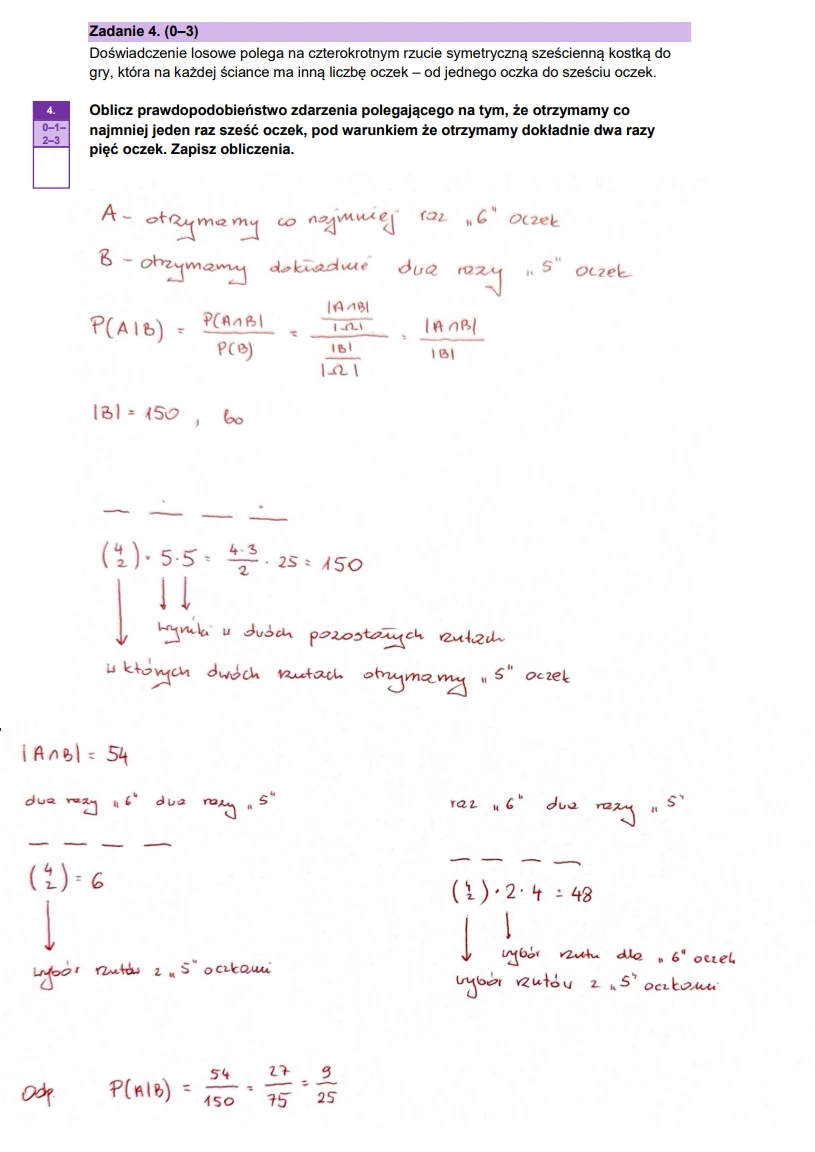 Zadanie 4. (0–3)
Doświadczenie losowe polega na czterokrotnym rzucie symetryczną sześcienną kostką do
gry, która na każdej ściance ma inną liczbę oczek – od jednego oczka do sześciu oczek.
4.
0–1–
2–3
Oblicz prawdopodobieństwo zdarzenia polegającego na tym, że otrzymamy co
najmniej jeden raz sześć oczek, pod warunkiem że otrzymamy dokładnie dwa razy
pięć oczek. Zapisz obliczenia.
A - otrzymamy co najmniej raz „6" oczek
B - otrzymamy dokładnie dwa razy „5" oczek
P(A|B) = P(A∩B|/P(B) = (|A∩B|/|Ω|)/(|B|/|Ω|) = |A∩B|/|B|
|B| = 150 , bo
(4 2) · 5·5 = 4·3/2 · 25 = 150
wyniki w dwóch pozostałych rzutach
w których dwóch rzutach otrzymamy „5" oczek
|A∩B| = 54
dwa razy „6" dwa razy „5"
raz „6" dwa razy „5"
(4 2) = 6
(4 2) · 2 · 4 = 48
wybór rzutów z „5" oczkami
wybór rzutu dla „6" oczek
wybór rzutów z „5" oczkami
Odp. P(A|B) = 54/150 = 27/75 = 9/25